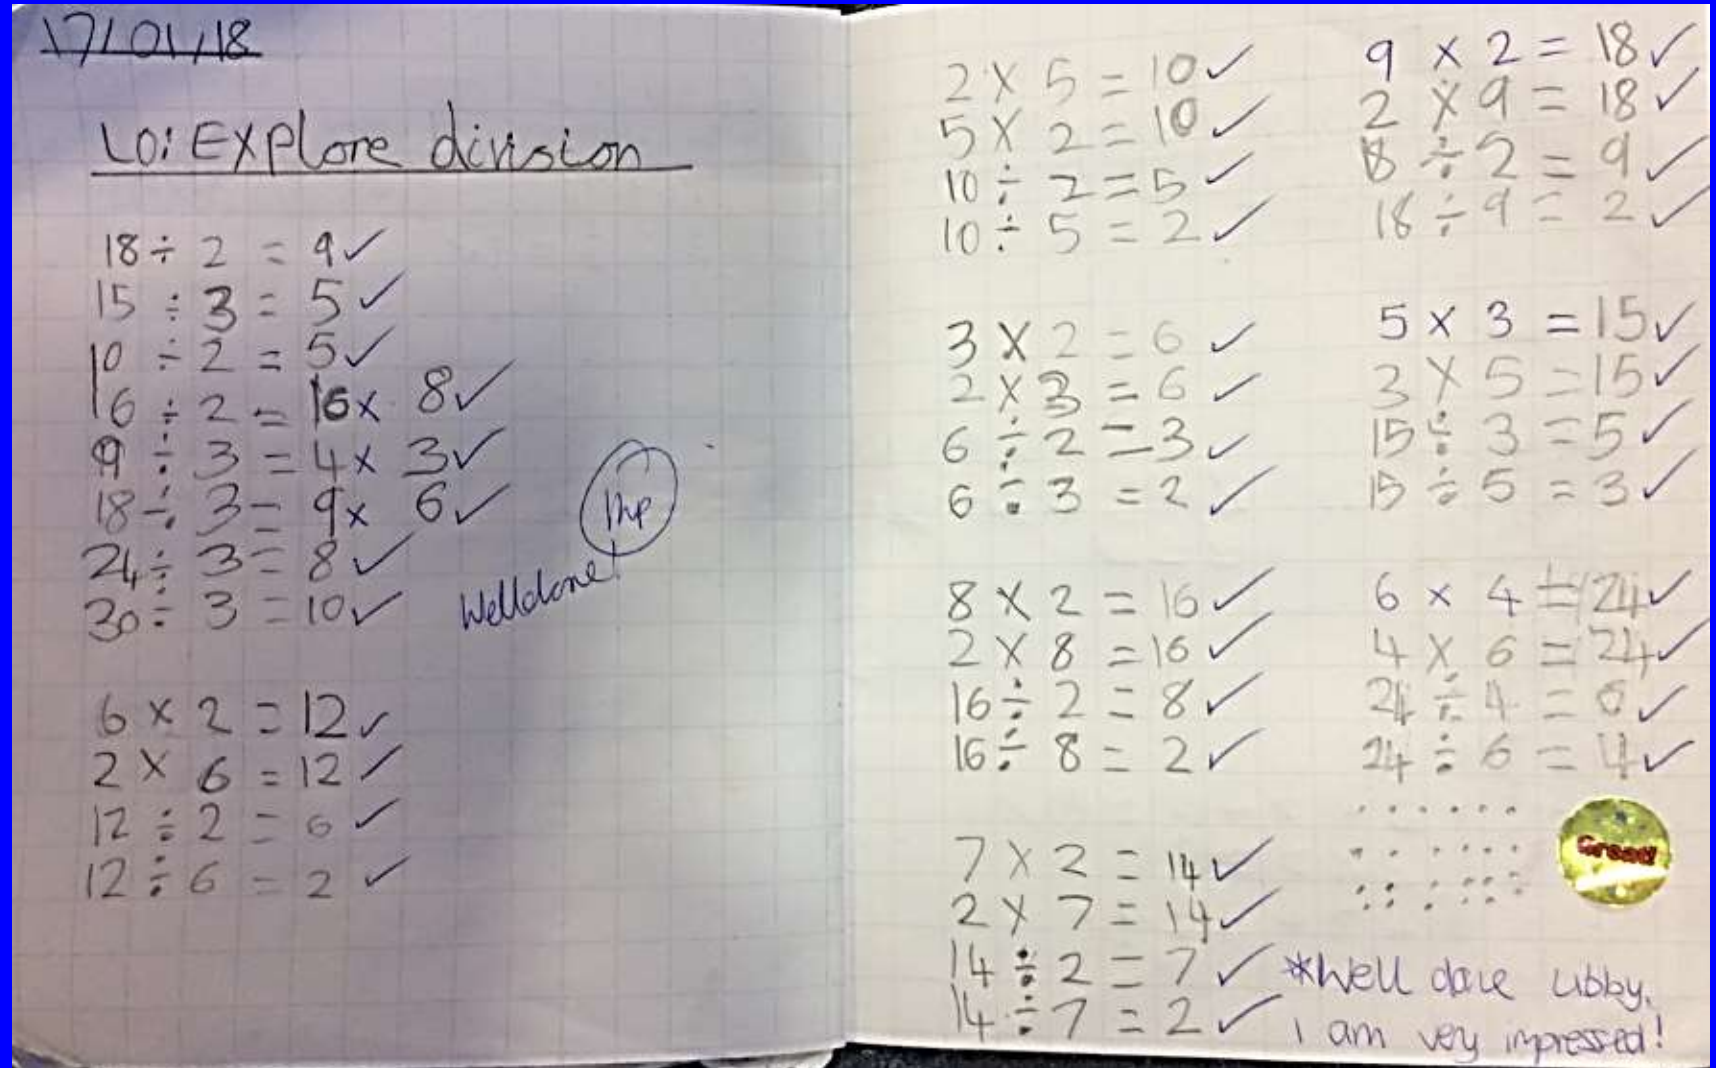 17/01/18
LO: Explore division
18 ÷ 2 = 9 ✓
15 ÷ 3 = 5 ✓
10 ÷ 2 = 5 ✓
16 ÷ 2 = 16 x 8 ✓
9 ÷ 3 = 4 x 3 ✓
18 ÷ 3 = 9 x 6 ✓
24 ÷ 3 = 8 ✓
30 ÷ 3 = 10 ✓
1hp
Welldone!
6 x 2 = 12 ✓
2 x 6 = 12 ✓
12 ÷ 2 = 6 ✓
12 ÷ 6 = 2 ✓
2 x 5 = 10 ✓
5 x 2 = 10 ✓
10 ÷ 2 = 5 ✓
10 ÷ 5 = 2 ✓
3 x 2 = 6 ✓
2 x 3 = 6 ✓
6 ÷ 2 = 3 ✓
6 ÷ 3 = 2 ✓
8 x 2 = 16 ✓
2 x 8 = 16 ✓
16 ÷ 2 = 8 ✓
16 ÷ 8 = 2 ✓
7 x 2 = 14 ✓
2 x 7 = 14 ✓
14 ÷ 2 = 7 ✓
14 ÷ 7 = 2 ✓
9 x 2 = 18 ✓
2 x 9 = 18 ✓
18 ÷ 2 = 9 ✓
18 ÷ 9 = 2 ✓
5 x 3 = 15 ✓
3 x 5 = 15 ✓
15 ÷ 3 = 5 ✓
15 ÷ 5 = 3 ✓
6 x 4 = 24 ✓
4 x 6 = 24 ✓
24 ÷ 4 = 6 ✓
24 ÷ 6 = 4 ✓
Great!
*Well done Libby,
I am very impressed!